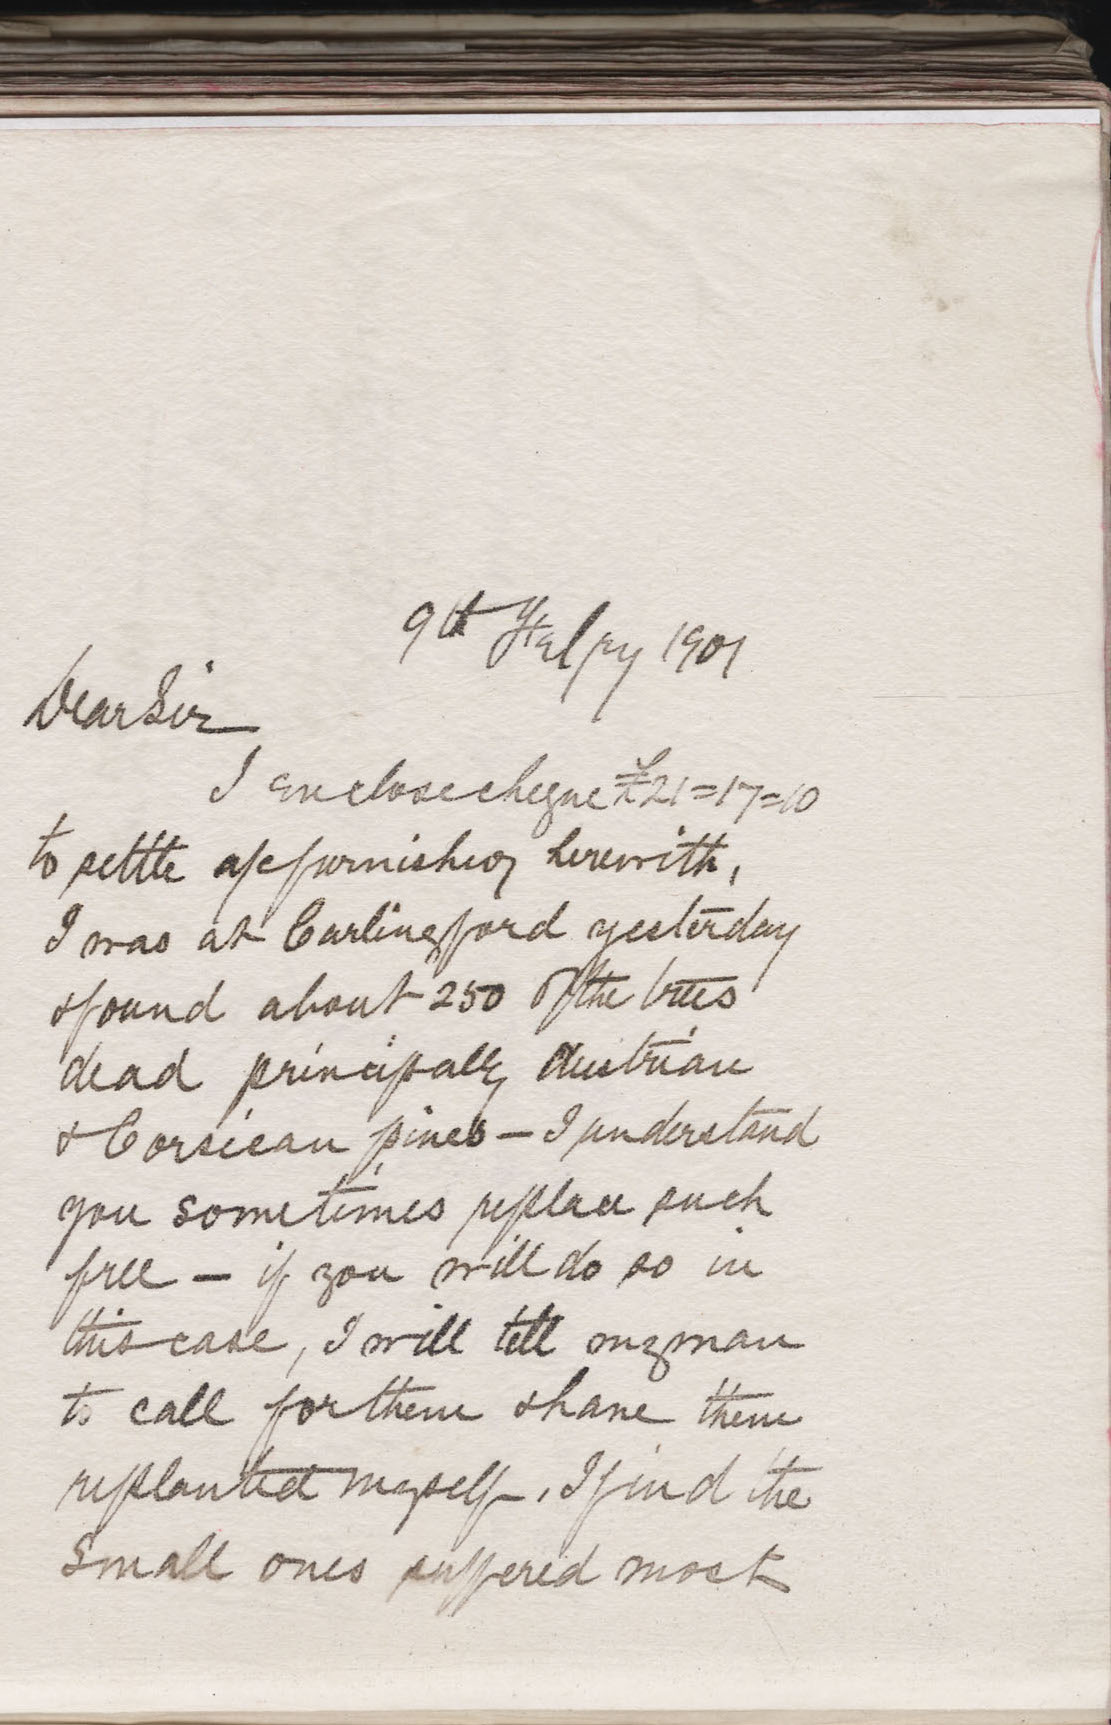 9th Febry 1901
Dear Sir
I enclose cheque £21=17=10
to settle a/c furnished herewith,
I was at Carlingford yesterday
& found about 250 of the trees
dead principally Austrian
& Corsican pines – I understand
you sometimes replace such
free – if you will do so in
this case, I will tell my man
to call for them & have them
replanted myself. I find the
small ones suffered most